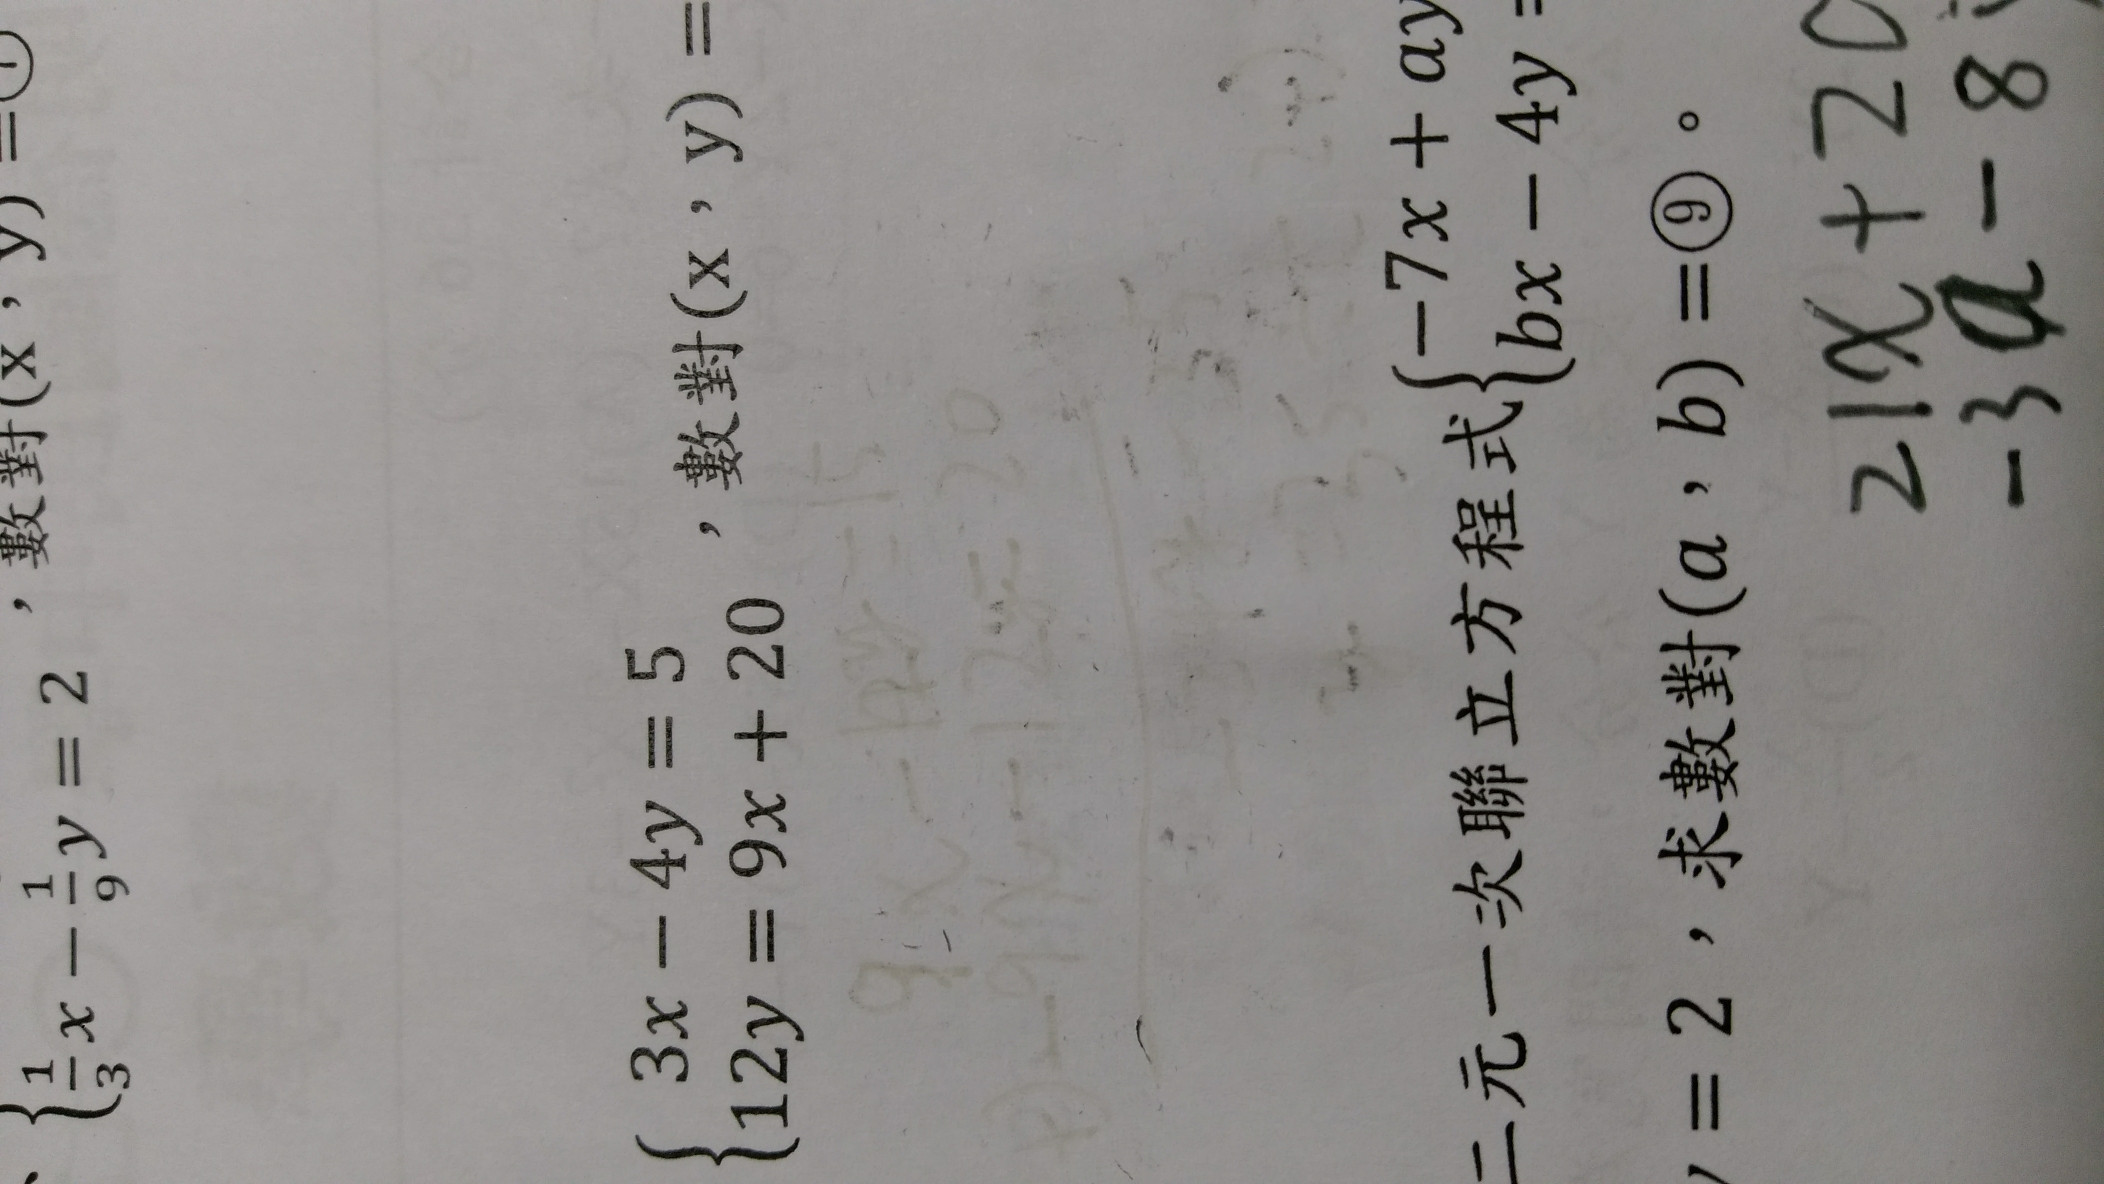 ，數對(x，y) =①
{1/3x − 1/9y = 2
{3x − 4y = 5
12y = 9x + 20
，數對(x，y) =
二元一次聯立方程式{−7x + ay
bx − 4y =
y = 2，求數對(a，b) =⑨。
21x + 20
-3a - 8